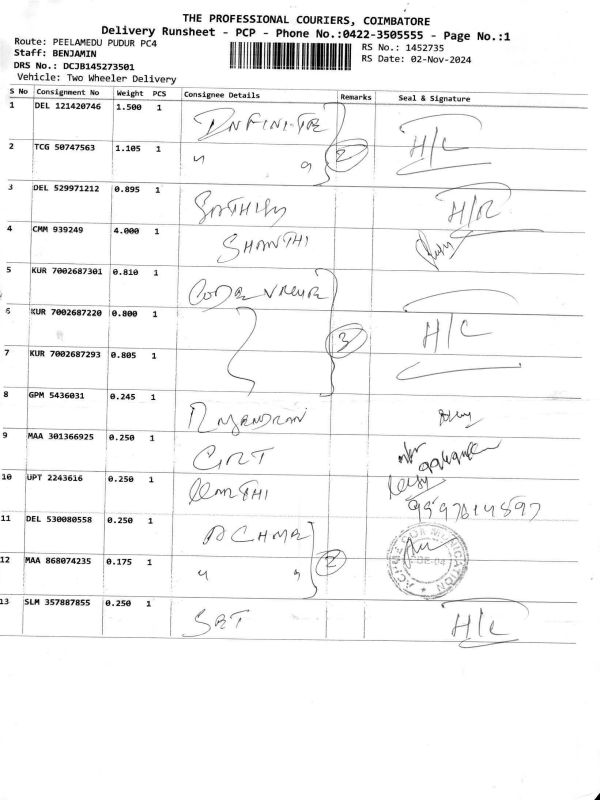 THE PROFESSIONAL COURIERS, COIMBATORE
Delivery Runsheet - PCP - Phone No.:0422-3505555 - Page No.:1
Route: PEELAMEDU PUDUR PC4
RS No.: 1452735
Staff: BENJAMIN
RS Date: 02-Nov-2024
DRS No.: DCJB145273501
Vehicle: Two Wheeler Delivery
S No Consignment No Weight PCS Consignee Details Remarks Seal & Signature
1 DEL 121420746 1.500 1 INFINITE H/C
2 TCG 50747563 1.105 1 " " 2
3 DEL 529971212 0.895 1 SATHISH H/R
4 CMM 939249 4.000 1 SHANTHI
5 KUR 7002687301 0.810 1 CODE VALUE
6 KUR 7002687220 0.800 1 3 H/C
7 KUR 7002687293 0.805 1
8 GPM 5436031 0.245 1 RAJENDRAN
9 MAA 301366925 0.250 1 GRT
10 UPT 2243616 0.250 1 KARTHI
11 DEL 530080558 0.250 1 ACHME
12 MAA 868074235 0.175 1 " " 2
13 SLM 357887855 0.250 1 SBT H/C